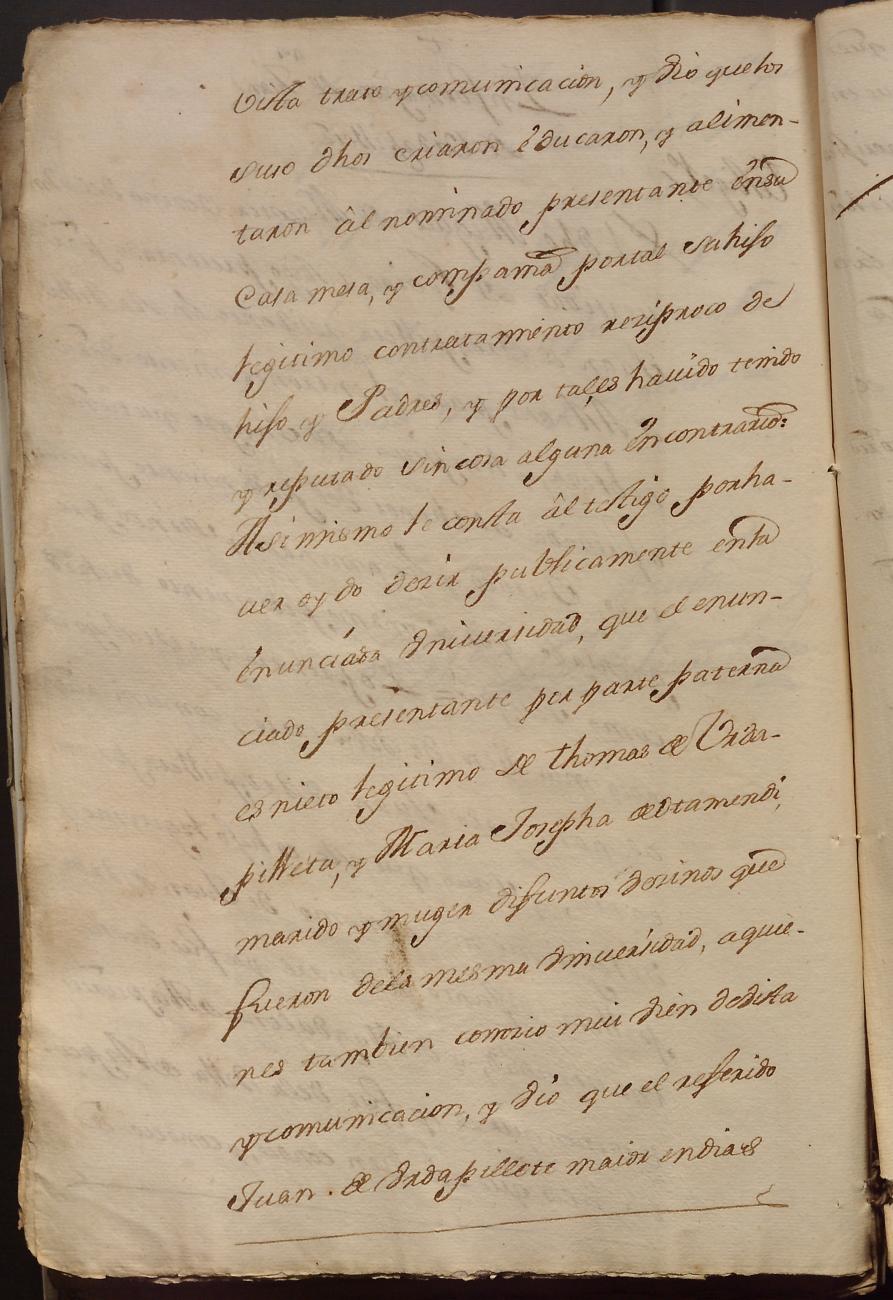 Vista trato y comunicacion, y dio que los
suso dhos criaron êducaron, y alimen-
taron âl nominado presentante ênsu
Casa mesa, y compama portal su hiso
legitimo contratamiento reziproco de
hiso y Padres, y por tal es hauido tenido
y reputado sin cosa alguna êncontrario:
Asimismo le consta âl testigo porha-
uer oydo dezir publicamente enla
ênunciada Vniuersidad, que el enun-
ciado presentante por parte paterna
es nieto legitimo de thomas de Vrda-
pilleta, y Maria Josepha de Otamendi,
marido y muger difuntos vezinos que
fueron dela mesma Vniuersidad, aquie-
nes tambien conozio mui vien de vista
y comunicacion, y dio que el referido
Juan. de Vrdapillete maior endias